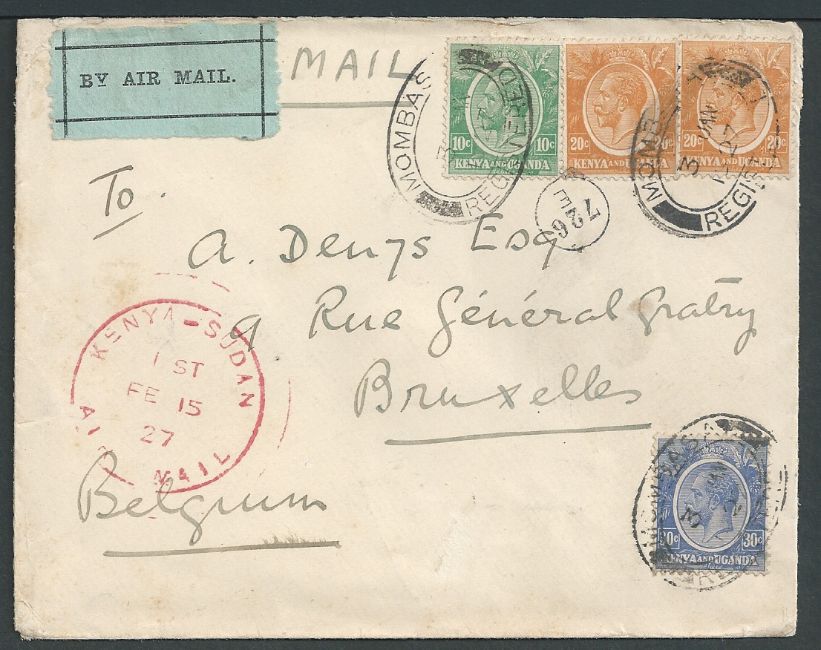 BY AIR MAIL.
MAIL
MOMBASA
REGISTERED
10c 10c
KENYA AND UGANDA
20c 20c
KENYA AND UGANDA
20c 20c
KENYA AND UGANDA
MOMBASA
3 JAN
REGISTERED
726
To
A. Denys Esq
9 Rue Général Gratry
Bruxelles
Belgium
KENYA-SUDAN
1ST
FE 15
27
AIR MAIL
MOMBASA
3 JAN
30c 30c
KENYA AND UGANDA